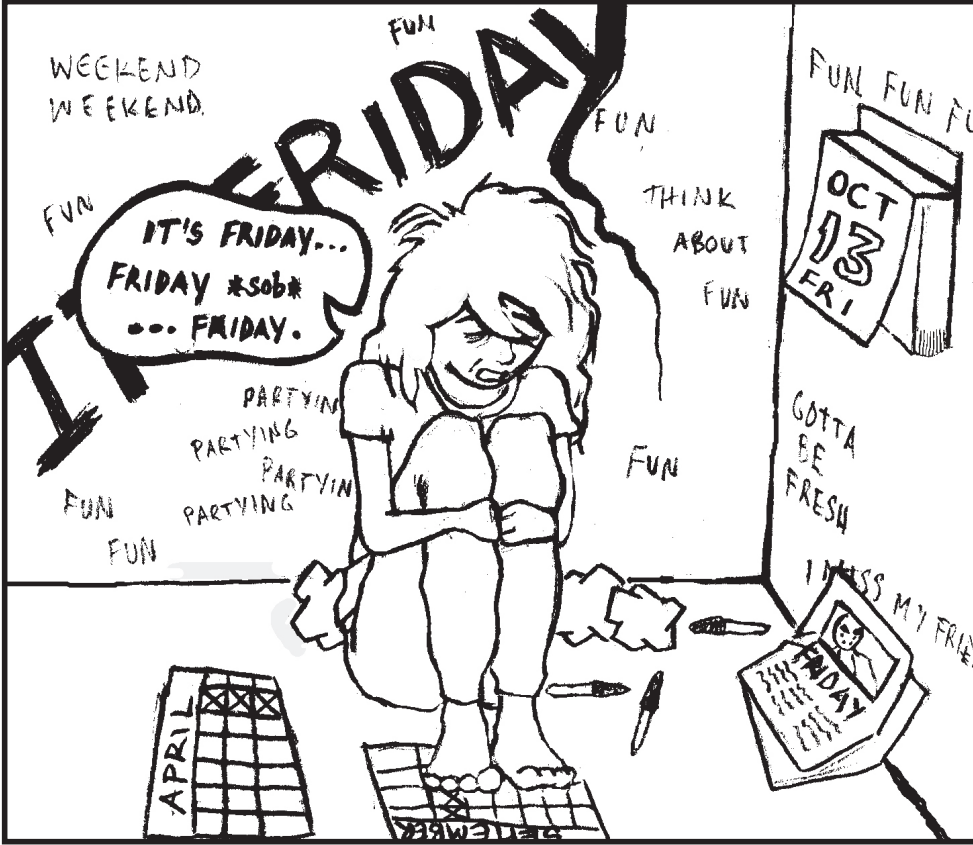 WEEKEND
WEEKEND
FUN
IT'S FRIDAY
FUN
FUN FUN FU
FUN
THINK
ABOUT
FUN
OCT
13
FRI
IT'S FRIDAY...
FRIDAY *sob*
... FRIDAY.
PARTYIN
PARTYING
PARTYIN
PARTYING
FUN
FUN
FUN
GOTTA
BE
FRESH
I MISS MY FRIE
FRIDAY
APRIL
SEPTEMBER